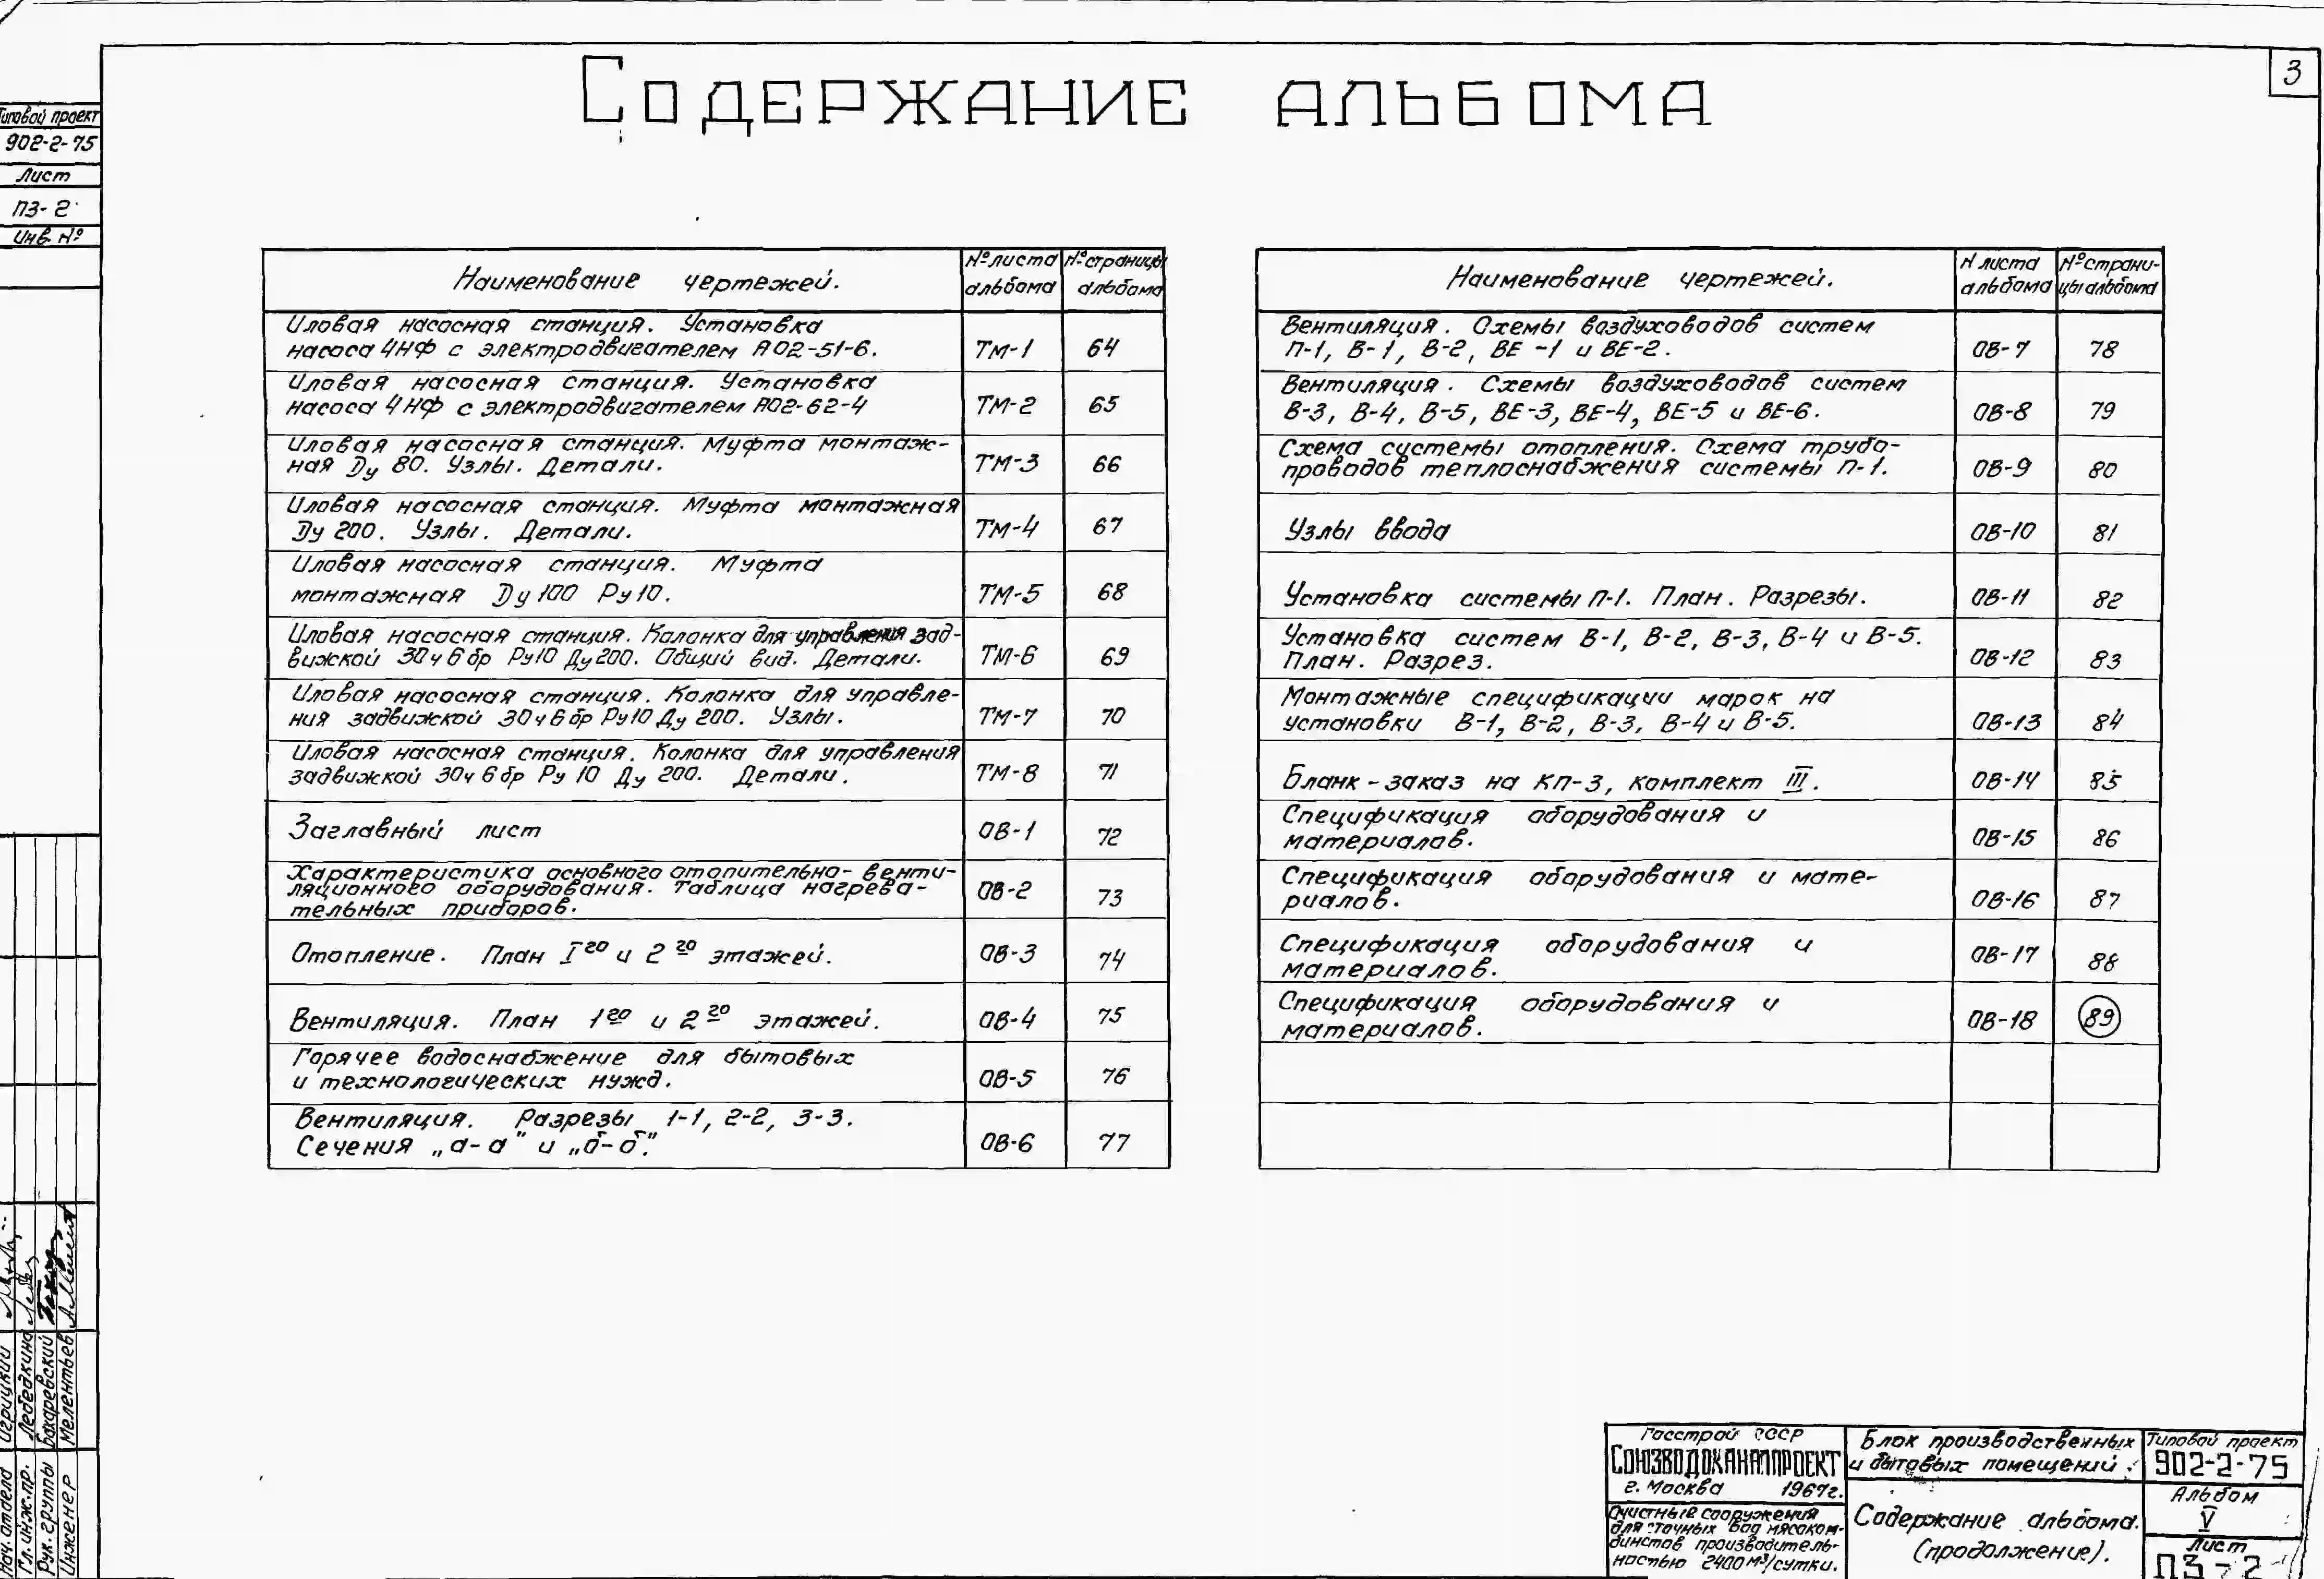 3
Содержание альбома
Типовой проект
902-2-75
Лист
ПЗ-2
Инв. №
Наименование чертежей.
№ листа альбома
№ страницы альбома
Иловая насосная станция. Установка
насоса 4НФ с электродвигателем АО2-51-6.
ТМ-1
64
Иловая насосная станция. Установка
насоса 4НФ с электродвигателем АО2-62-4
ТМ-2
65
Иловая насосная станция. Муфта монтаж-
ная Ду 80. Узлы. Детали.
ТМ-3
66
Иловая насосная станция. Муфта монтажная
Ду 200. Узлы. Детали.
ТМ-4
67
Иловая насосная станция. Муфта
монтажная Ду 100 Ру 10.
ТМ-5
68
Иловая насосная станция. Колонка для управления зад-
вижкой 30ч6бр Ру10 Ду200. Общий вид. Детали.
ТМ-6
69
Иловая насосная станция. Колонка для управле-
ния задвижкой 30ч6бр Ру10 Ду 200. Узлы.
ТМ-7
70
Иловая насосная станция. Колонка для управления
задвижкой 30ч6бр Ру 10 Ду 200. Детали.
ТМ-8
71
Заглавный лист
ОВ-1
72
Характеристика основного отопительно-венти-
ляционного оборудования. Таблица нагрева-
тельных приборов.
ОВ-2
73
Отопление. План I го и 2 го этажей.
ОВ-3
74
Вентиляция. План 1 го и 2 го этажей.
ОВ-4
75
Горячее водоснабжение для бытовых
и технологических нужд.
ОВ-5
76
Вентиляция. Разрезы 1-1, 2-2, 3-3.
Сечения „а-а" и „б-б".
ОВ-6
77
Наименование чертежей.
N листа альбома
№ страни-
цы альбома
Вентиляция. Схемы воздуховодов систем
П-1, В-1, В-2, ВЕ-1 и ВЕ-2.
ОВ-7
78
Вентиляция. Схемы воздуховодов систем
В-3, В-4, В-5, ВЕ-3, ВЕ-4, ВЕ-5 и ВЕ-6.
ОВ-8
79
Схема системы отопления. Схема трубо-
проводов теплоснабжения системы П-1.
ОВ-9
80
Узлы ввода
ОВ-10
81
Установка системы П-1. План. Разрезы.
ОВ-11
82
Установка систем В-1, В-2, В-3, В-4 и В-5.
План. Разрез.
ОВ-12
83
Монтажные спецификации марок на
установки В-1, В-2, В-3, В-4 и В-5.
ОВ-13
84
Бланк-заказ на КП-3, комплект III.
ОВ-14
85
Спецификация оборудования и
материалов.
ОВ-15
86
Спецификация оборудования и мате-
риалов.
ОВ-16
87
Спецификация оборудования и
материалов.
ОВ-17
88
Спецификация оборудования и
материалов.
ОВ-18
89
Нач. отдела
Гл. инж. пр. Лебедкина
Рук. группы Бахаревский
Инженер Мелентьев
Госстрой СССР
СОЮЗВОДОКАНАЛПРОЕКТ
г. Москва 1967г.
Очистные сооружения
для сточных вод мясоком-
бинатов производитель-
ностью 2400 м³/сутки.
Блок производственных
и бытовых помещений.
Содержание альбома.
(продолжение).
Типовой проект
902-2-75
Альбом
V
Лист
ПЗ-2